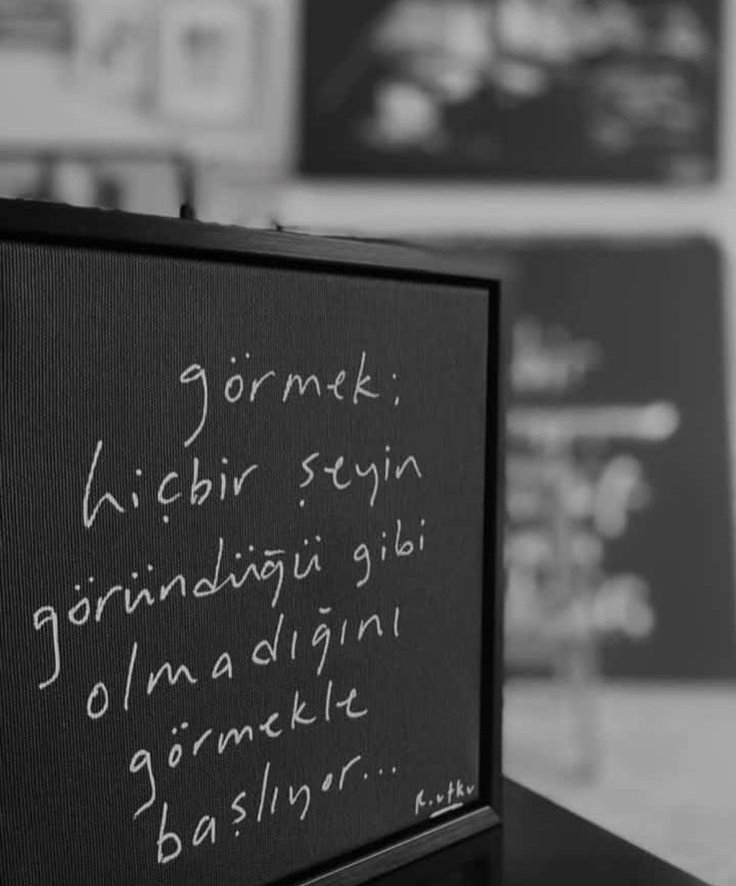 görmek;
hiçbir şeyin
göründüğü gibi
olmadığını
görmekle
başlıyor...
R.utku